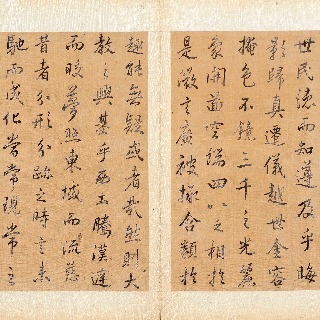 世民德而知遵及乎晦
影歸真遷儀越世金容
掩色不鏡三千之光麗
象開圖空端四八之相於
是微言廣被拯含類於
趣能無疑或者哉然則大
教之興基乎西土騰漢庭
而晈夢照東域而流慈
昔者分形分跡之時言未
馳而成化當常現常之